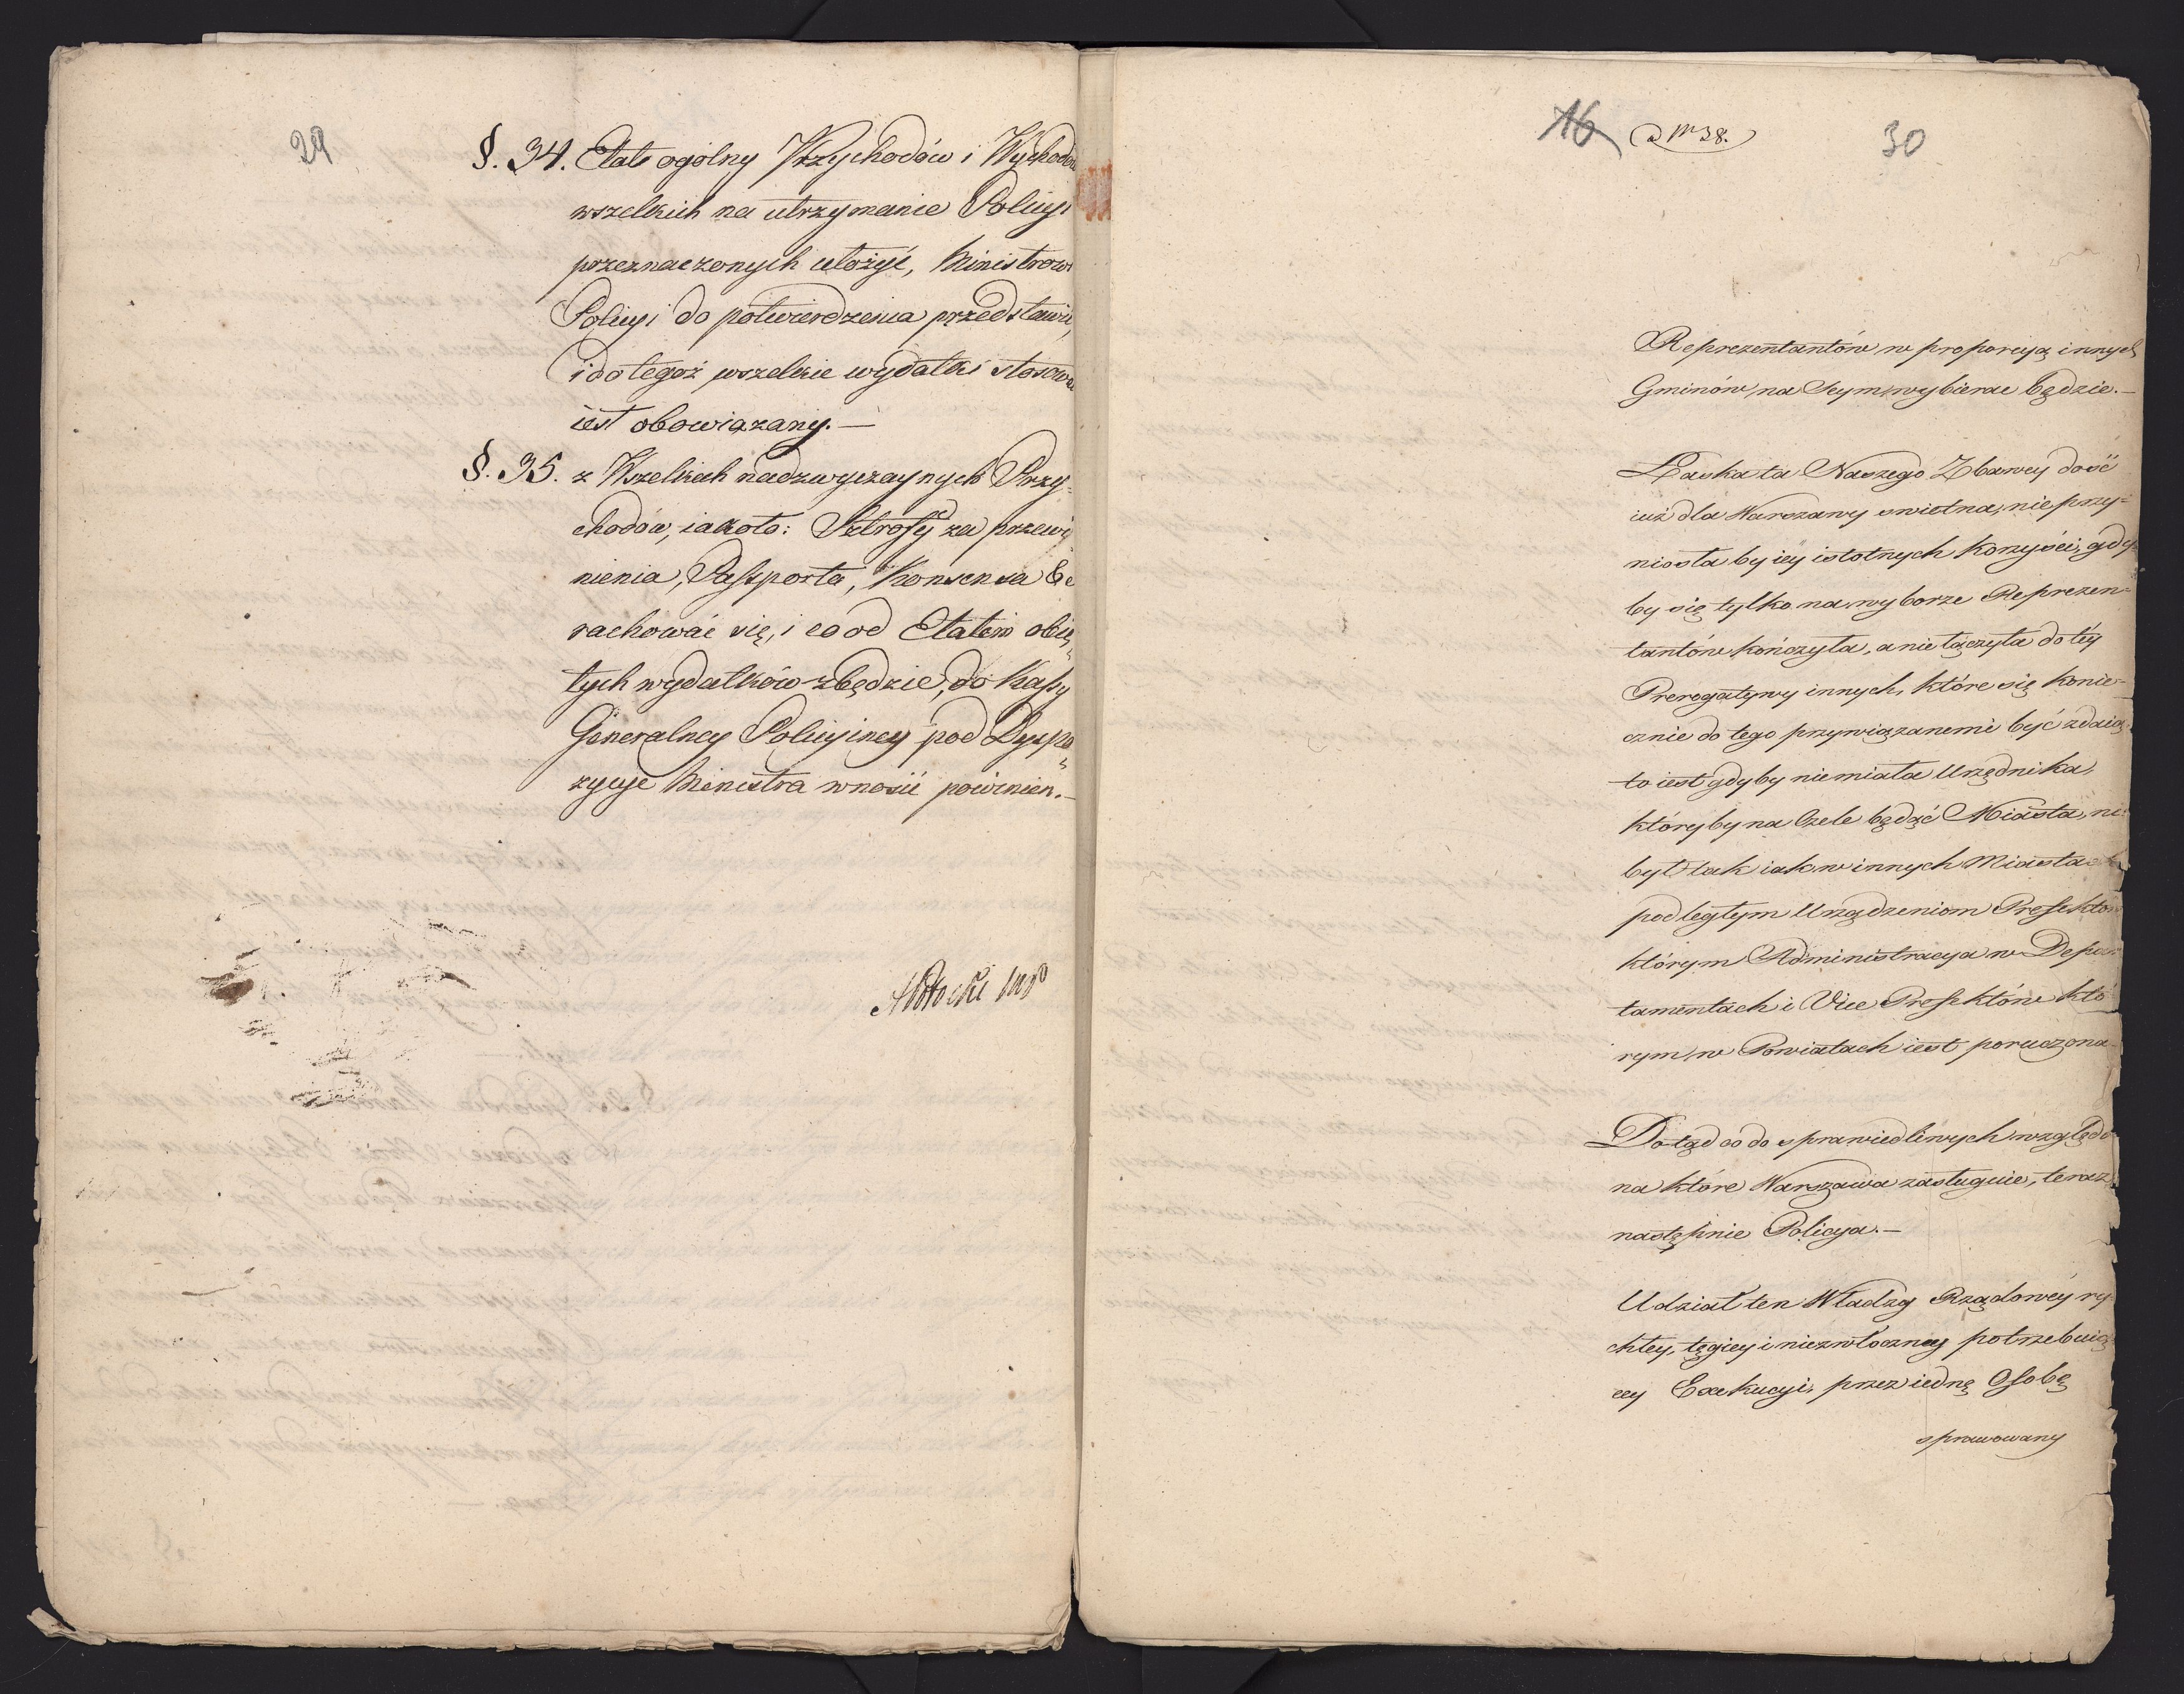 29
§. 34. Etat ogólny Przychodów i Wychodów
wszelkich na utrzymanie Policyi
przeznaczonych ułożyć, Ministrowi
Policyi do potwierdzenia przedstawić,
i do tegoż wszelkie wydatki stosować
iest obowiązany.—
§. 35. z Wszelkich nadzwyczaynych Przy=
chodów, iakoto: Sztrofy za przewi
nienia, Passporta, Konsensa &c
rachować się, i co od Etatem obię
tych wydatków zbędzie, do Kassy
Generalney Policyiney pod Dyspo
zycyę Ministra wnosić powinien.—
APotocki
16 38. 30
Reprezentantów w proporcyą innych
Gminów, na Seym wybierac będzie.—
Łaska ta Naszego Zbawcy dość
iuż dla Warszawy swietna, nie przy=
niosła by iéy istotnych korzyści, gdy
by się tylko na wyborze Reprezen=
tantów kończyła, a nie łączyła do téy
Prerogatywy innych, które się konie=
cznie do tego przywiązanemi być zdaią,
to iest gdyby niemiała Urzędnika,
któryby na Czele będąć Miasta, nie
był tak iak w innych Miastach
podległym Urządzeniom Prefektów
którym Administracya w Depar
tamentach i Vice Prefektów któ
rym w Powiatach iest poruczona
Dotąd co do sprawiedliwych względów
na które Warszawa zasługuie, teraz
nastęnie Policya.—
Udział ten Władzy Rządowéy ry
chłey, tęgiey i niezwłoczney potrzebuią
cey Exekucyi, przez iednę Osobę
sprawowany